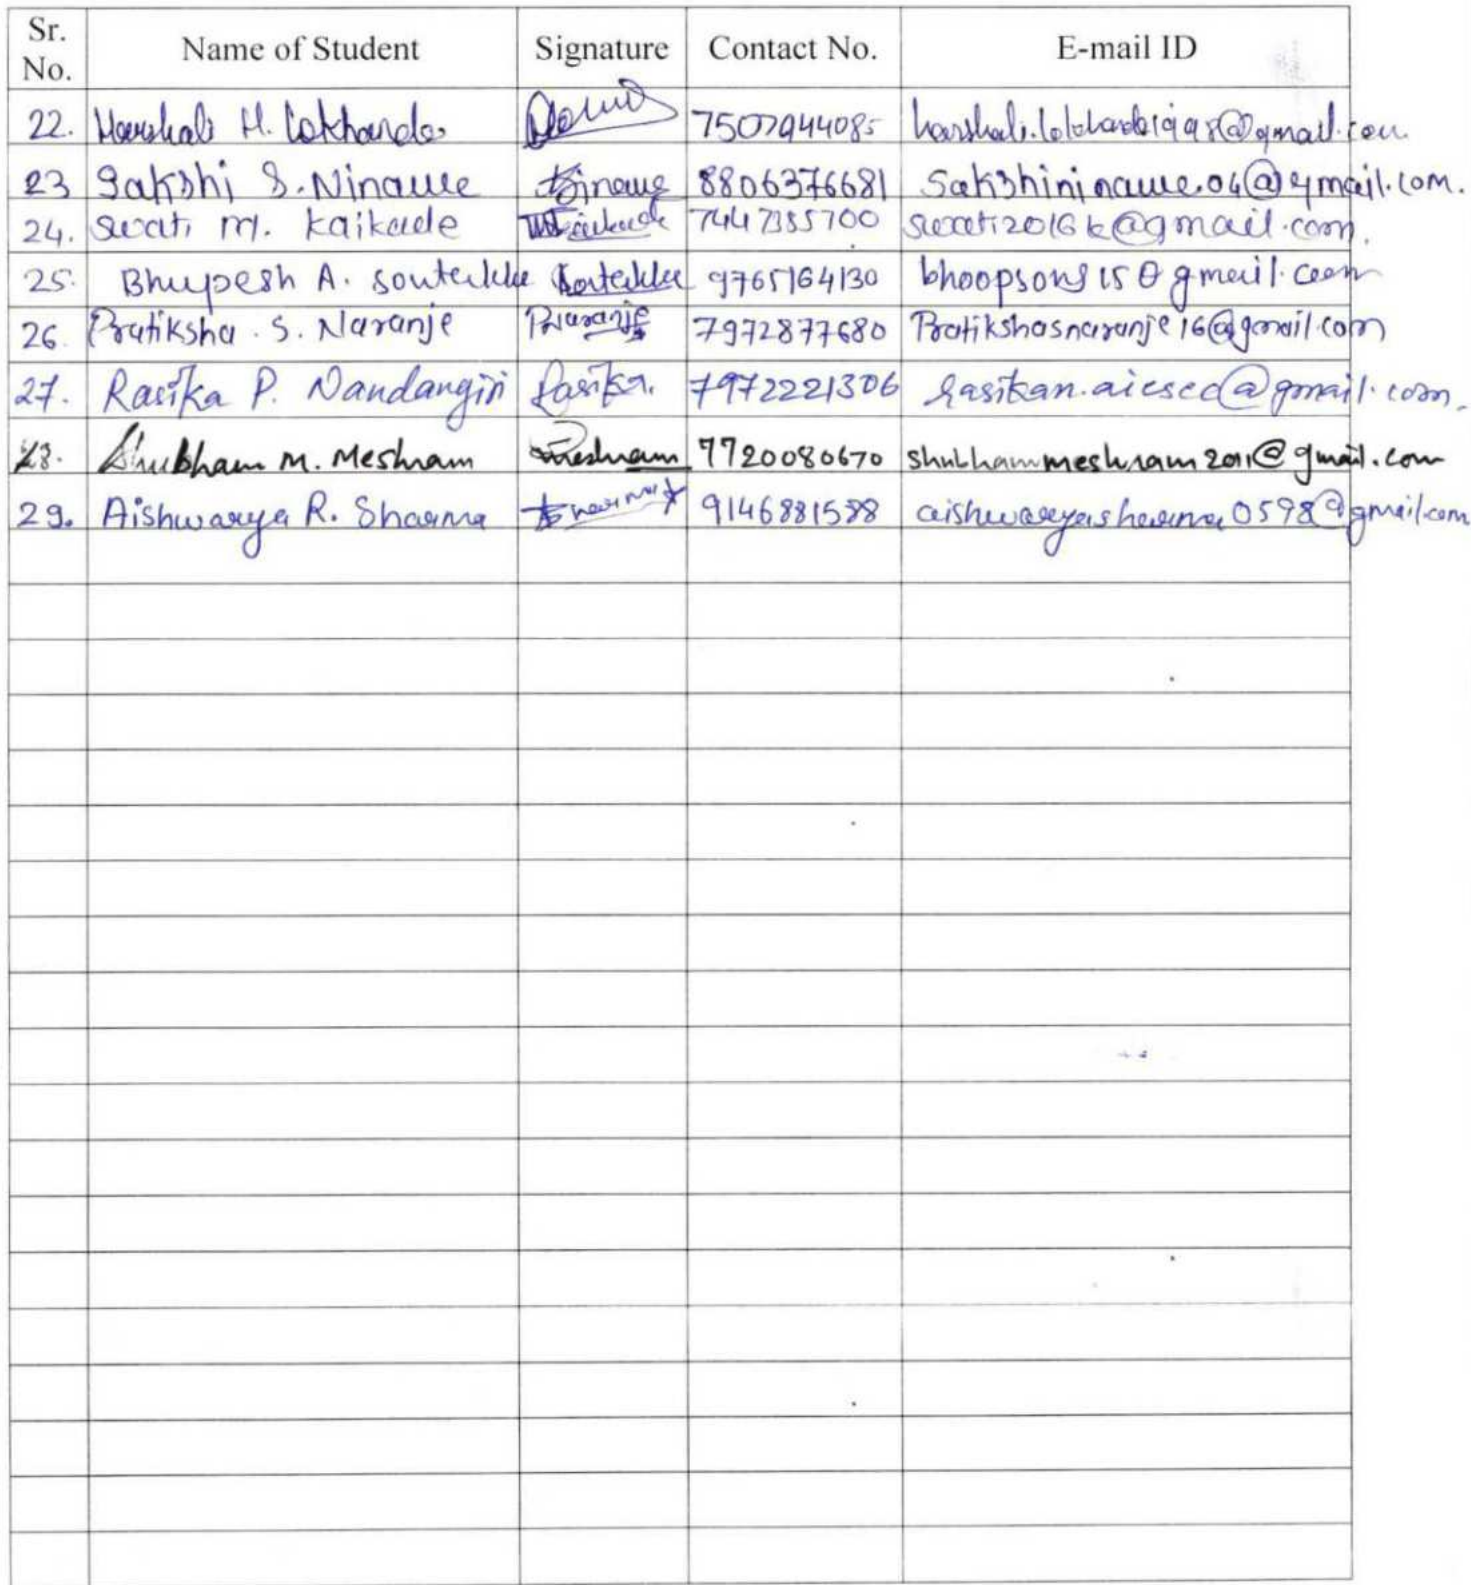 Sr. No. Name of Student Signature Contact No. E-mail ID
22. Harshali H. Lokhande 7507944085 @gmail.com
23 Sakshi S. Ninawe Ninawe 8806376681 Sakshininawe.04@gmail.com.
24. Swati M. Kaikade Kaikade 7447385700 swati2016k@gmail.com.
25. Bhupesh A. 9765164130 bhoopsons15@gmail.com
26. Pratiksha . S. Naranje PNaranje 7972877680 Pratikshasnaranje16@gmail.com
27. Rasika P. Nandangiri Rasika. 7972221306 rasikan.aicsec@gmail.com.
28. Shubham M. Meshram Meshram 7720080670 shubhammeshram2011@gmail.com
29. Aishwarya R. Sharma 9146881588 aishwaryasharma0598@gmail.com